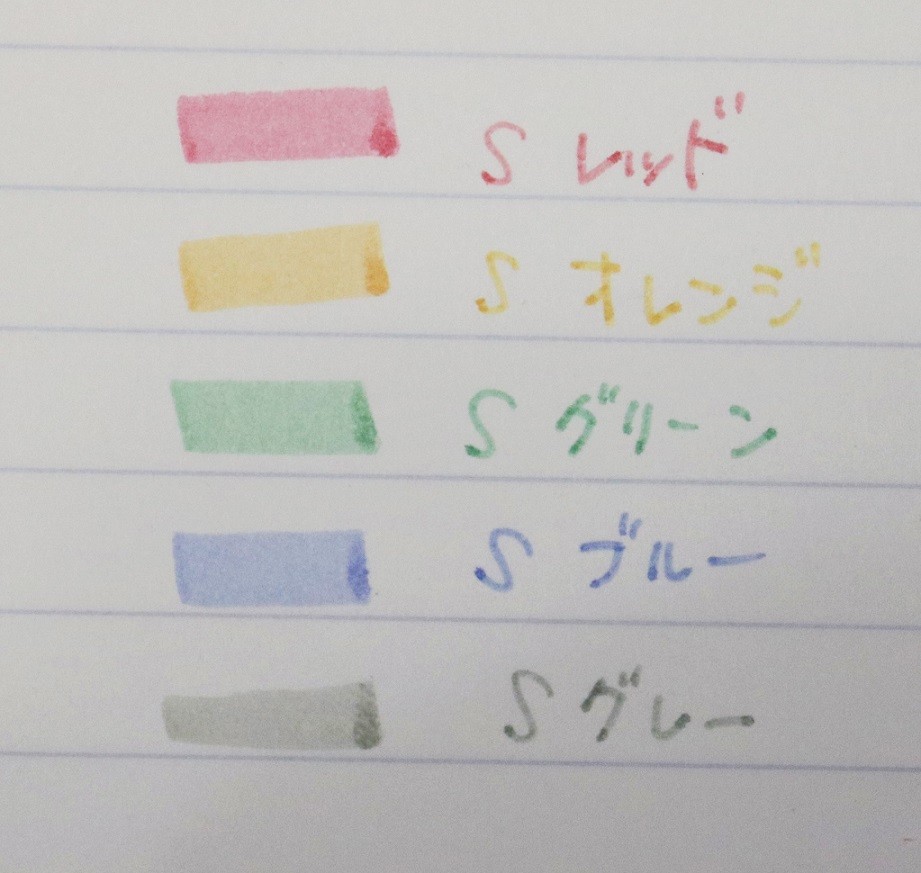 S レッド
S オレンジ
S グリーン
S ブルー
S グレー